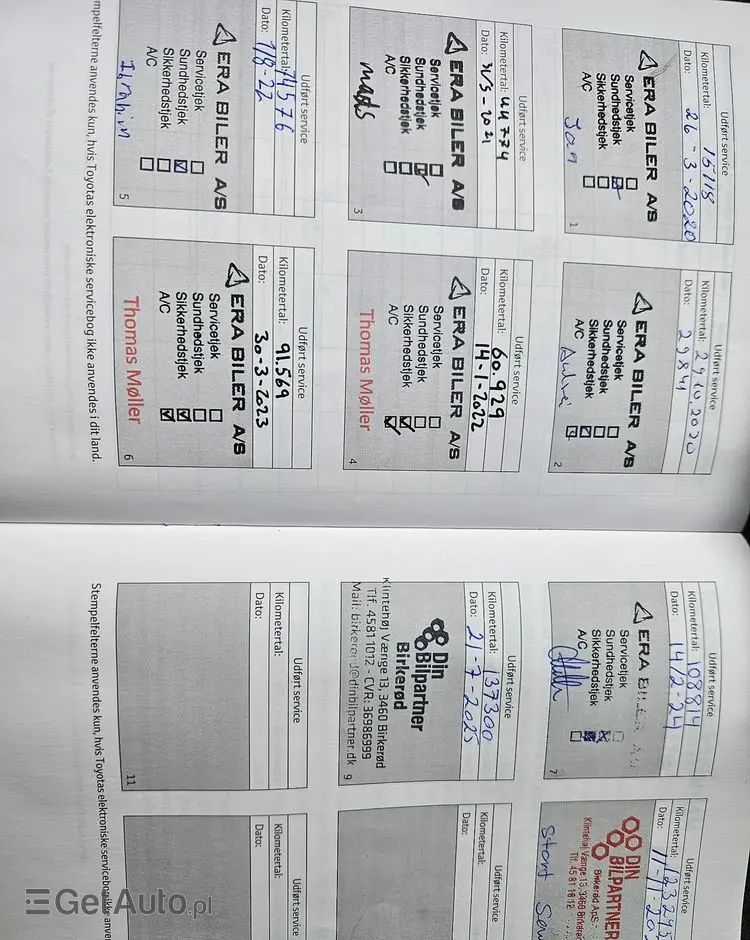 Udført service
Kilometertal: 15118
Dato: 26-3-2020
ERA BILER A/S
Servicetjek
Sundhedstjek
Sikkerhedstjek
A/C
Jan
1
Udført service
Kilometertal: 29.10.2020
Dato: 29841
ERA BILER A/S
Servicetjek
Sundhedstjek
Sikkerhedstjek
A/C
2
Udført service
Kilometertal: 44734
Dato: 31/5-2021
ERA BILER A/S
Servicetjek
Sundhedstjek
Sikkerhedstjek
A/C
mads
3
Udført service
Kilometertal: 60.929
Dato: 14-1-2022
ERA BILER A/S
Servicetjek
Sundhedstjek
Sikkerhedstjek
A/C
Thomas Møller
4
Udført service
Kilometertal: 74576
Dato: 1/8-22
ERA BILER A/S
Servicetjek
Sundhedstjek
Sikkerhedstjek
A/C
Ibrahim
5
Udført service
Kilometertal: 91.569
Dato: 30-3-2023
ERA BILER A/S
Servicetjek
Sundhedstjek
Sikkerhedstjek
A/C
Thomas Møller
6
mpelfelterne anvendes kun, hvis Toyotas elektroniske servicebog ikke anvendes i dit land.
Udført service
Kilometertal: 108814
Dato: 14/2-24
ERA
Servicetjek
Sundhedstjek
Sikkerhedstjek
A/C
7
Udført service
Kilometertal: 123295
Dato: 11-11-20
DIN
BILPARTNER
Birkerød ApS
Klintehøj Vænge 13, 3460 Birkerød
Tlf. 45 81 10 12
Stort Se
Udført service
Kilometertal: 137300
Dato: 21-7-2025
Din
Bilpartner
Birkerød
Klintehøj Vænge 13, 3460 Birkerød
Tlf. 45811012 - CVR: 36986999
Mail: birkerod@dinbilpartner.dk
9
Udført service
Kilometertal:
Dato:
Udført service
Kilometertal:
Dato:
11
Udført service
Kilometertal:
Dato:
Stempelfelterne anvendes kun, hvis Toyotas elektroniske servicebog ikke anve
GetAuto.pl